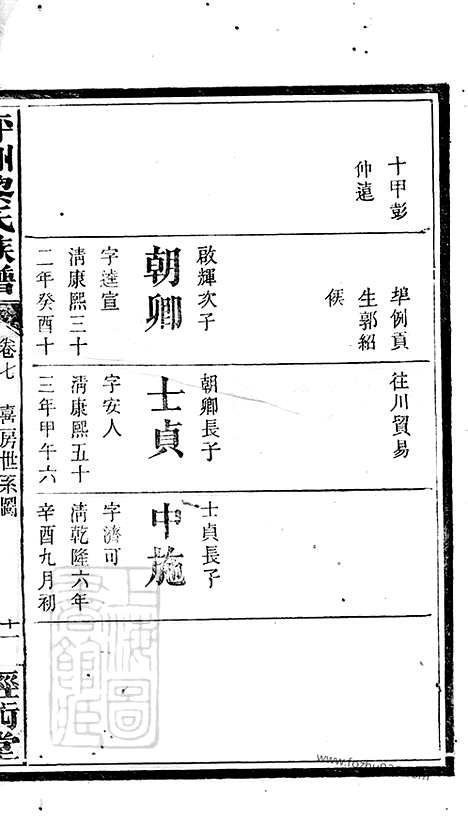 十甲彭
仲遠
埠例貢
生郭紹
侯
啟輝次子
朝卿
字逵宣
淸康熙三十
二年癸酉十
往川貿易
朝卿長子
士貞
字安人
淸康熙五十
三年甲午六
士貞長子
中施
字濟可
淸乾隆六年
辛酉九月初
氏族譜
卷七
喜房世系圖
十一
經術堂
上海圖書館藏